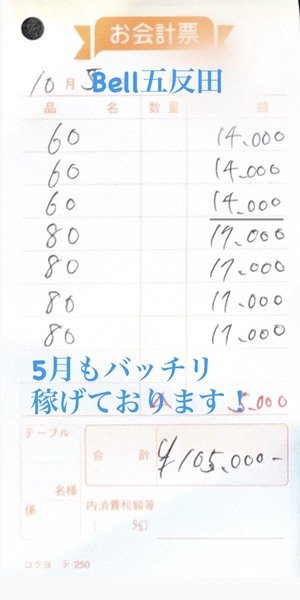 お会計票
10月5
Bell五反田
品 名 数量 額
60 14.000
60 14.000
60 14.000
80 17.000
80 17.000
80 17.000
80 17.000
5月もバッチリ
稼げております!
5.000
テーブル
合計 ¥105.000-
名様
係
内消費税額等
( %)
コクヨ テ-250